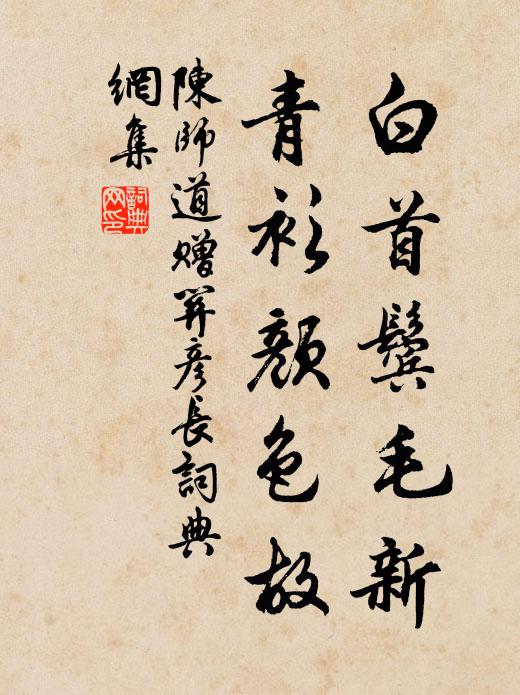 白首鬓毛新
青衫颜色故
陳師道贈笄彦長詞典
網集
詞典
网印